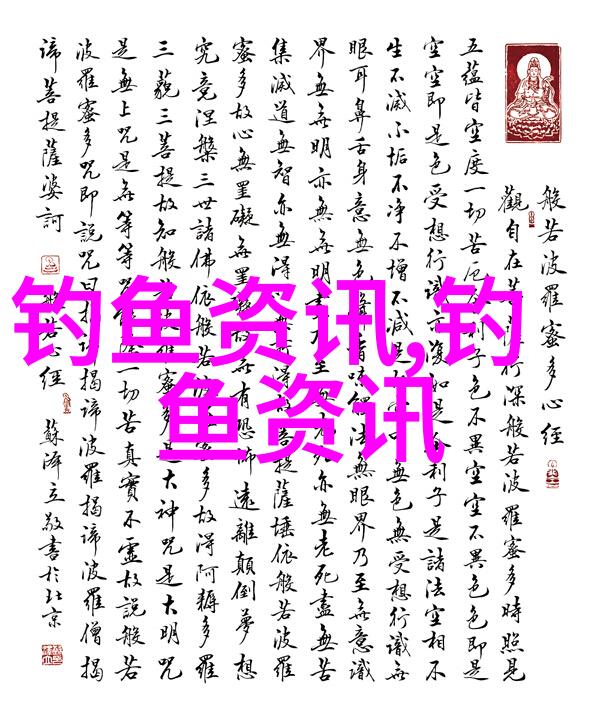 钓鱼资讯,钓
鱼资讯
般若波羅蜜多心經
觀自在菩薩行深般若波羅蜜多時照見
五蘊皆空度一切苦厄舍利子色不異空空不異色色即是
空空即是色受想行識亦復如是舍利子是諸法空相不
生不滅不垢不净不增不減是故空中無色無受想行識無
眼耳鼻舌身意無色聲香味觸法無眼界乃至無意識
界無無明亦無無明盡乃至無老死亦無老死盡無苦
集滅道無智亦無得以無所得故菩提薩埵依般若波羅
蜜多故心無罣礙無罣礙故無有恐怖遠離顛倒夢想
究竟涅槃三世諸佛依般若波羅蜜多故得阿耨多羅
三藐三菩提故知般若波羅蜜多是大神咒是大明咒
是無上咒是無等等咒能除一切苦真實不虛故說般若
波羅蜜多咒即說咒曰揭諦揭諦波羅揭諦波羅僧揭
諦菩提薩婆訶
般若心經 蘇澤立敬書於北京